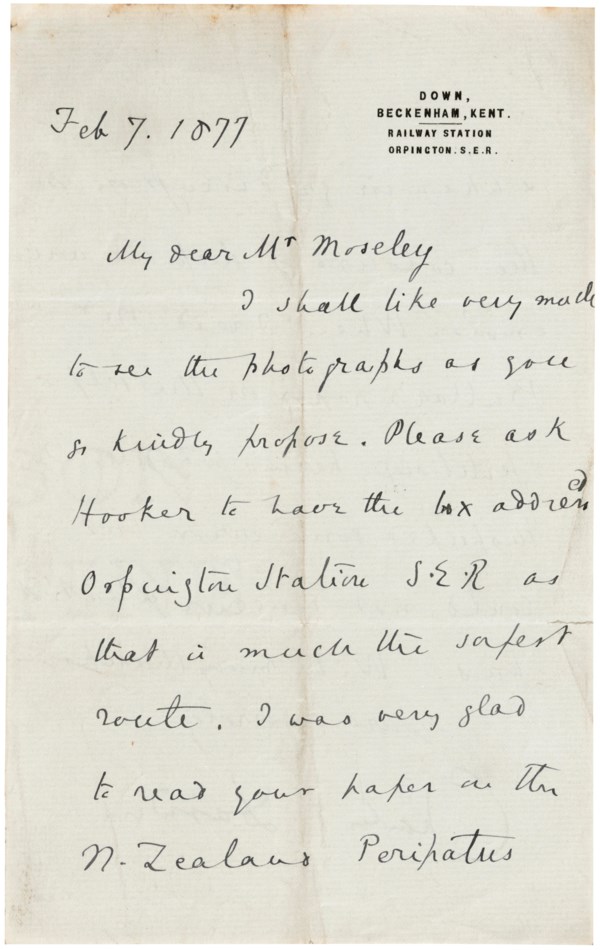 DOWN,
BECKENHAM, KENT.
RAILWAY STATION
ORPINGTON. S.E.R.
Feb 7. 1877
My dear Mr Moseley
I shall like very much
to see the photographs as you
so kindly propose. Please ask
Hooker to have the box addressed
Orpington Station S.E.R as
that is much the safest
route. I was very glad
to read your paper on the
N. Zealand Peripatus